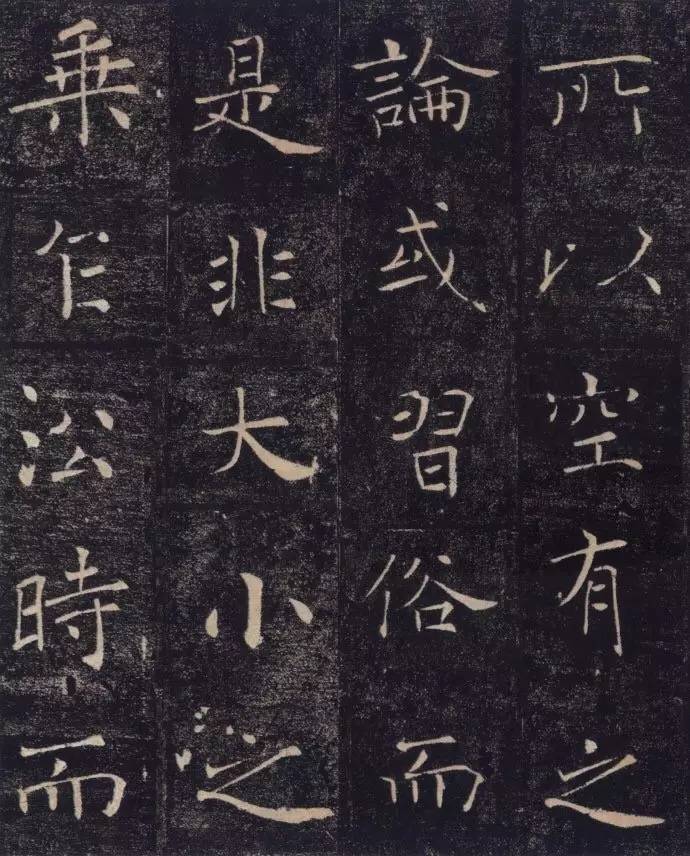 所以空有之
論或習俗而
是非大小之
乗乍㳂時而